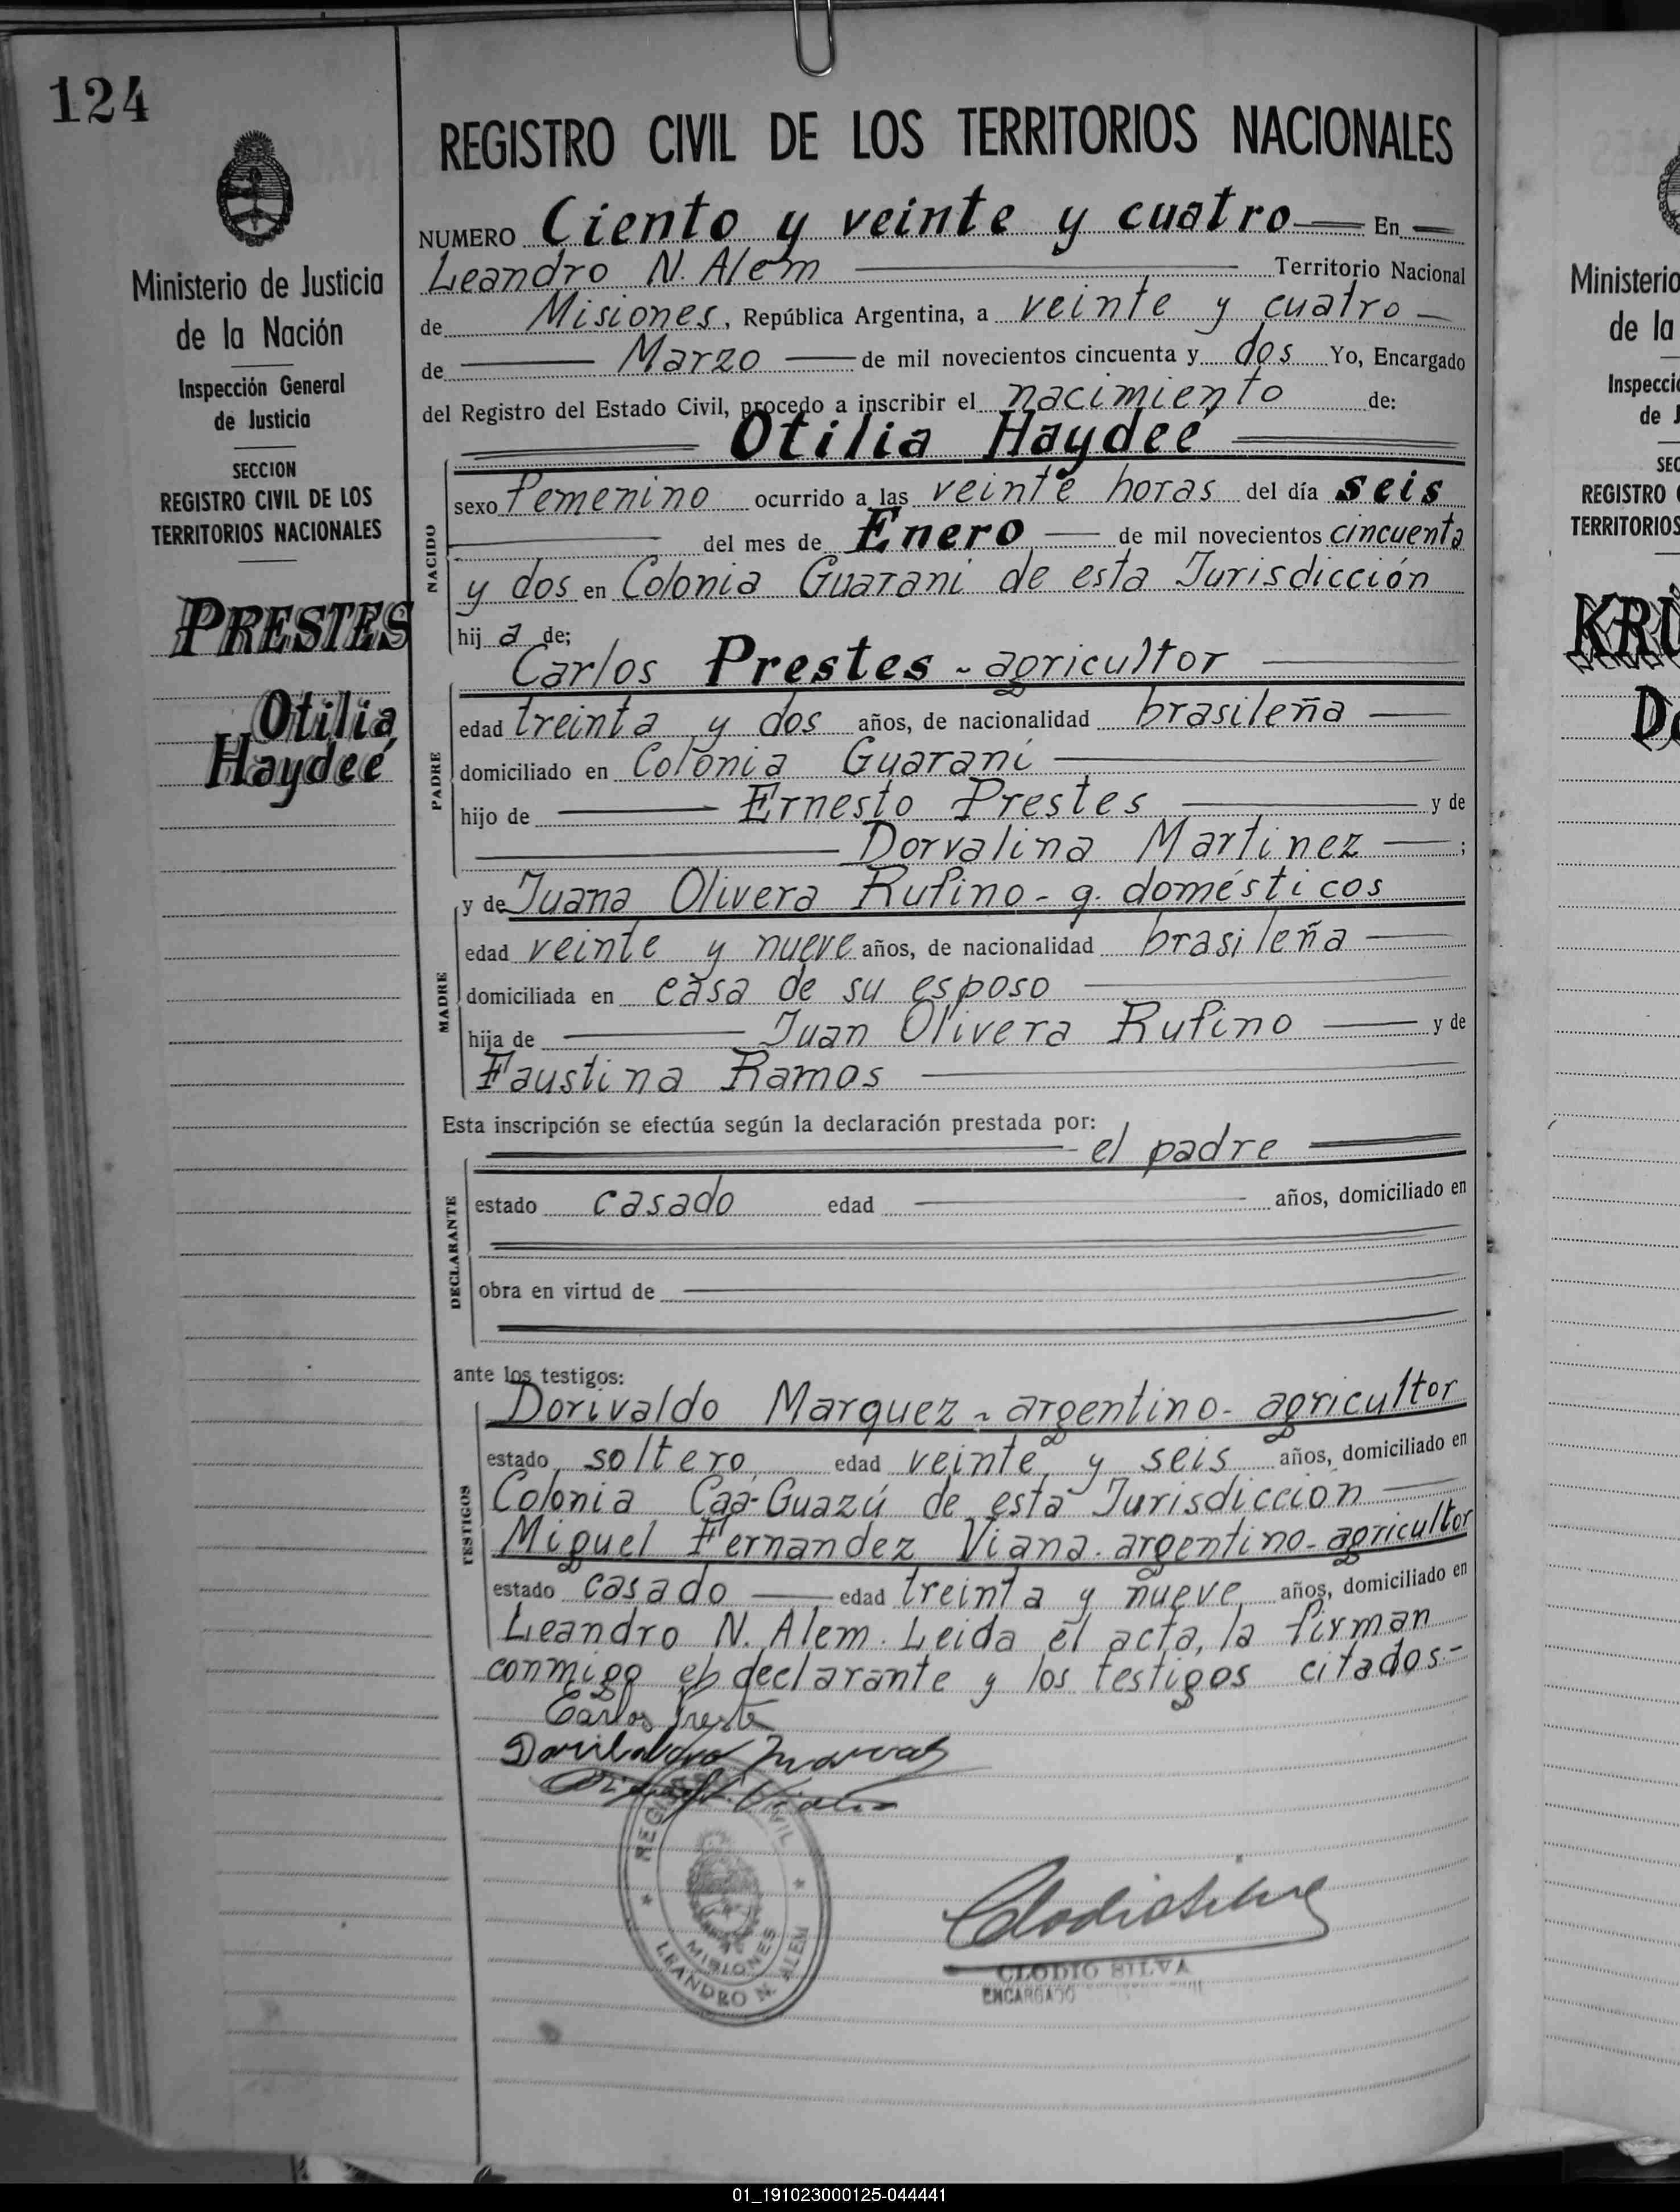 124
Ministerio de Justicia
de la Nación
Inspección General
de Justicia
SECCION
REGISTRO CIVIL DE LOS
TERRITORIOS NACIONALES
PRESTES
Otilia
Haydeé
REGISTRO CIVIL DE LOS TERRITORIOS NACIONALES
NUMERO Ciento y veinte y cuatro En
Leandro N. Alem Territorio Nacional
de Misiones, República Argentina, a veinte y cuatro
de Marzo de mil novecientos cincuenta y dos Yo, Encargado
del Registro del Estado Civil, procedo a inscribir el nacimiento de:
Otilia Haydeé
NACIDO
sexo femenino ocurrido a las veinte horas del día seis
del mes de Enero de mil novecientos cincuenta
y dos en Colonia Guarani de esta Jurisdicción
hija de;
Carlos Prestes - agricultor
PADRE
edad treinta y dos años, de nacionalidad brasileña
domiciliado en Colonia Guarani
hijo de Ernesto Prestes y de
Dorvalina Martinez ;
y de Juana Olivera Rufino - q. domésticos
MADRE
edad veinte y nueve años, de nacionalidad brasileña
domiciliada en casa de su esposo
hija de Juan Olivera Rufino y de
Faustina Ramos
Esta inscripción se efectúa según la declaración prestada por:
el padre
DECLARANTE
estado casado edad años, domiciliado en
obra en virtud de
ante los testigos:
Dorivaldo Marquez - argentino - agricultor
TESTIGOS
estado soltero edad veinte y seis años, domiciliado en
Colonia Caa-Guazú de esta Jurisdiccion
Miguel Fernandez Viana - argentino - agricultor
estado casado edad treinta y nueve años, domiciliado en
Leandro N. Alem. Leida el acta, la firman
conmigo el declarante y los testigos citados.-
Carlos Preste
REGISTRO CIVIL
MISIONES
LEANDRO N. ALEM
Clodio Silva
CLODIO SILVA
ENCARGADO
Ministerio
de la
Inspecci
de J
SEC
REGISTRO
TERRITORIOS
KRÜ
Do
01_191023000125-044441